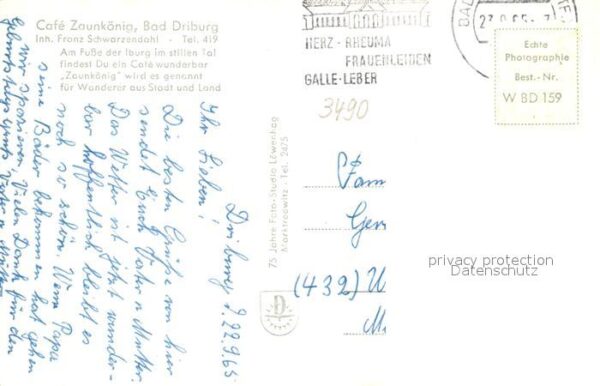 Café Zaunkönig, Bad Driburg
Inh. Franz Schwarzendahl - Tel. 419
Am Fuße der Iburg im stillen Tal
findest Du ein Café wunderbar
„Zaunkönig" wird es genannt
für Wanderer aus Stadt und Land
HERZ - RHEUMA
FRAUENLEIDEN
GALLE-LEBER
Echte
Photographie
Best.-Nr.
W BD 159
3490
Driburg d. 22.9.65
Ihr Lieben!
Die besten Grüße von hier
sendet Euch Vater u Mutter.
Das Wetter ist jetzt wunder-
bar hoffentlich bleibt es
noch so schön. Wenn Papa
seine Bäder bekommen hat gehen
wir spazieren. Vielen Dank für den
Vater u Mutter
75 Jahre Foto-Studio Löwenhag
Marktredwitz - Tel. 2475
D
Fam
(432)
privacy protection
Datenschutz